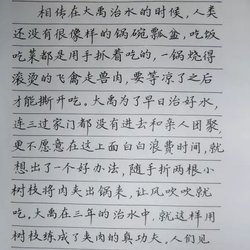 相传在大禹治水的时候，人类
还没有很像样的锅碗瓢盆，吃饭
吃菜都是用手抓着吃的，一锅烧得
滚烫的飞禽走兽肉，要等凉了之后
才能撕开吃。大禹为了早日治好水，
连三过家门都没有进去和亲人团聚，
更不愿意在这上面白白浪费时间，就
想出了一个好办法，随手折两根小
树枝将肉夹出锅来，让风吹吹就
吃，大禹在三年的治水中，就这样用
树枝练成了夹肉的真功夫，人们见